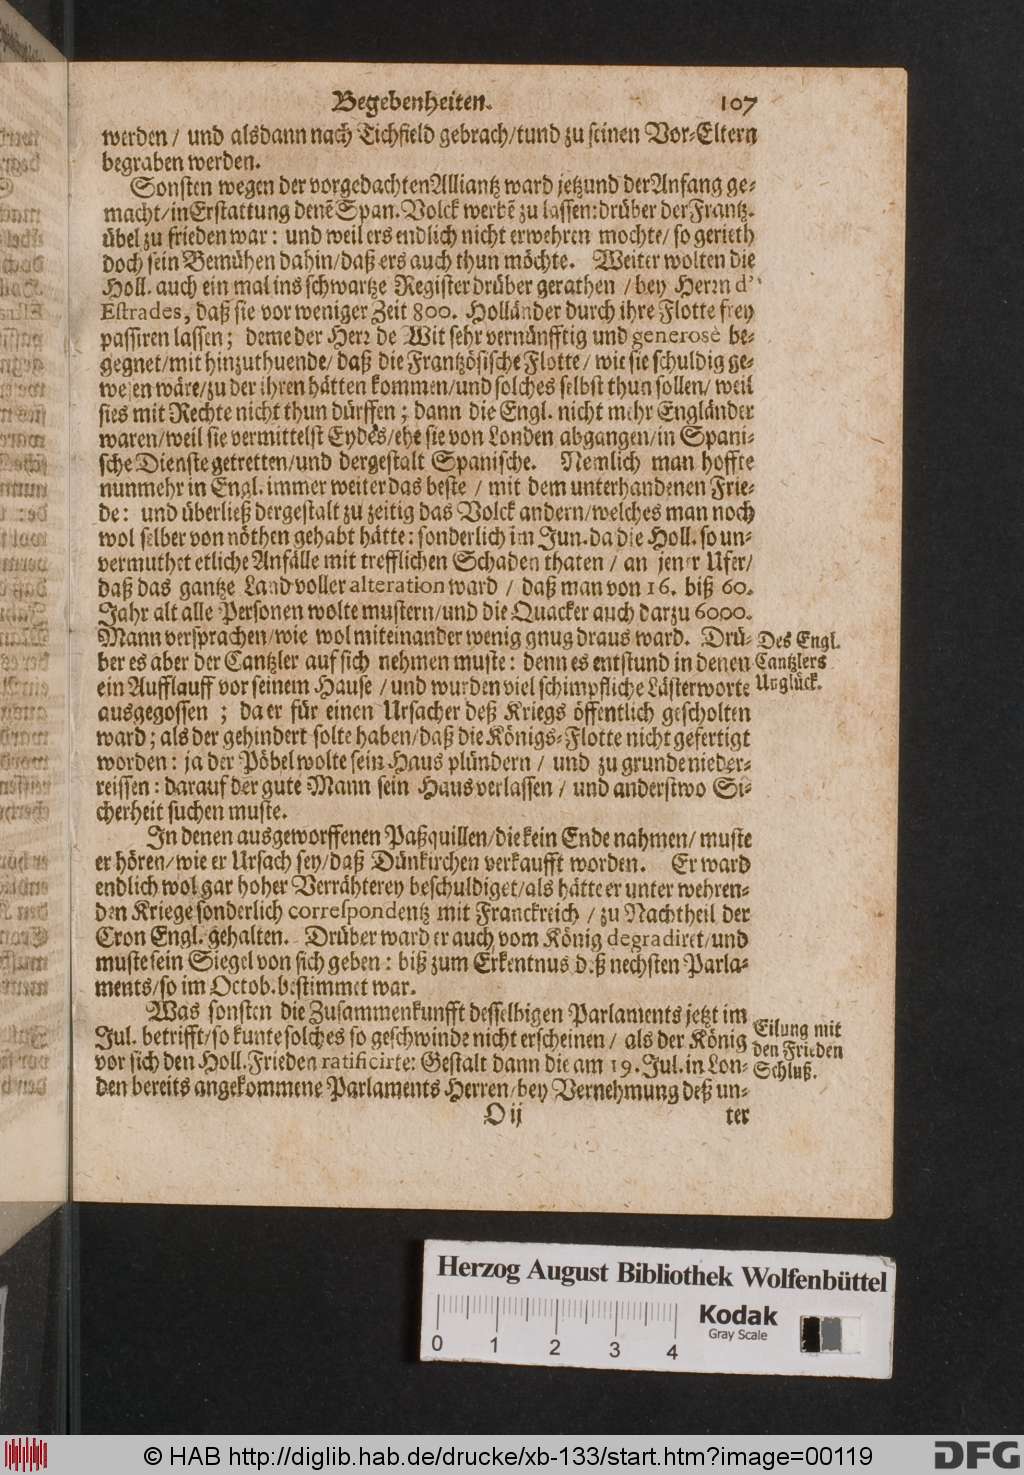 Begebenheiten. 107
werden / und alsdann nach Tichfield gebrach / tund zu seinen Vor-Eltern
begraben werden.
Sonsten wegen der vorgedachten Alliantz ward jetzund der Anfang ge-
macht / in Erstattung denē Span. Volck werbē zu lassen: drüber der Frantz.
übel zu frieden war: und weil ers endlich nicht erwehren mochte / so gerieth
doch sein Bemühen dahin / daß ers auch thun möchte. Weiter wolten die
Holl. auch ein mal ins schwartze Register drüber gerathen / bey Herrn d'
Estrades, daß sie vor weniger Zeit 800. Holländer durch ihre Flotte frey
passiren lassen; deme der Herr de Wit sehr vernünfftig und generosè be-
gegnet / mit hinzuthuende / daß die Frantzösische Flotte / wie sie schuldig ge-
wesen wäre / zu der ihren hätten kommen / und solches selbst thun sollen / weil
sies mit Rechte nicht thun dürffen; dann die Engl. nicht mehr Engländer
waren / weil sie vermittelst Eydes / ehe sie von Londen abgangen / in Spani-
sche Dienste getretten / und dergestalt Spanische. Nemlich man hoffte
nunmehr in Engl. immer weiter das beste / mit dem unterhandenen Frie-
de: und überließ dergestalt zu zeitig das Volck andern / welches man noch
wol selber von nöthen gehabt hätte: sonderlich im Jun. da die Holl. so un-
vermuthet etliche Anfälle mit trefflichen Schaden thaten / an jener Ufer /
daß das gantze Land voller alteration ward / daß man von 16. biß 60.
Jahr alt alle Personen wolte mustern / und die Quacker auch darzu 6000.
Mann versprachen / wie wol miteinander wenig gnug draus ward. Drü-
ber es aber der Cantzler auf sich nehmen muste: denn es entstund in denen
ein Aufflauff vor seinem Hause / und wurden viel schimpfliche Lästerworte
ausgegossen; da er für einen Ursacher deß Kriegs öffentlich gescholten
ward; als der gehindert solte haben / daß die Königs-Flotte nicht gefertigt
worden: ja der Pöbel wolte sein Haus plündern / und zu grunde nieder-
reissen: darauf der gute Mann sein Haus verlassen / und anderstwo Si-
cherheit suchen muste.
Des Engl.
Cantzlers
Unglück.
In denen ausgeworffenen Paßquillen / die kein Ende nahmen / muste
er hören / wie er Ursach sey / daß Dünkirchen verkaufft worden. Er ward
endlich wol gar hoher Verrähterey beschuldiget / als hätte er unter wehren-
den Kriege sonderlich correspondentz mit Franckreich / zu Nachtheil der
Cron Engl. gehalten. Drüber ward er auch vom König degradiret / und
muste sein Siegel von sich geben: biß zum Erkentnus deß nechsten Parla-
ments / so im Octob. bestimmet war.
Was sonsten die Zusammenkunfft desselbigen Parlaments jetzt im
Jul. betrifft / so kunte solches so geschwinde nicht erscheinen / als der König
vor sich den Holl. Frieden ratificirte: Gestalt dann die am 19. Jul. in Lon-
den bereits angekommene Parlaments Herren / bey Vernehmung deß un-
Eilung mit
den Frieden
Schluß.
O ij ter
Herzog August Bibliothek Wolfenbüttel
Kodak
Gray Scale
0 1 2 3 4
© HAB http://diglib.hab.de/drucke/xb-133/start.htm?image=00119
DFG